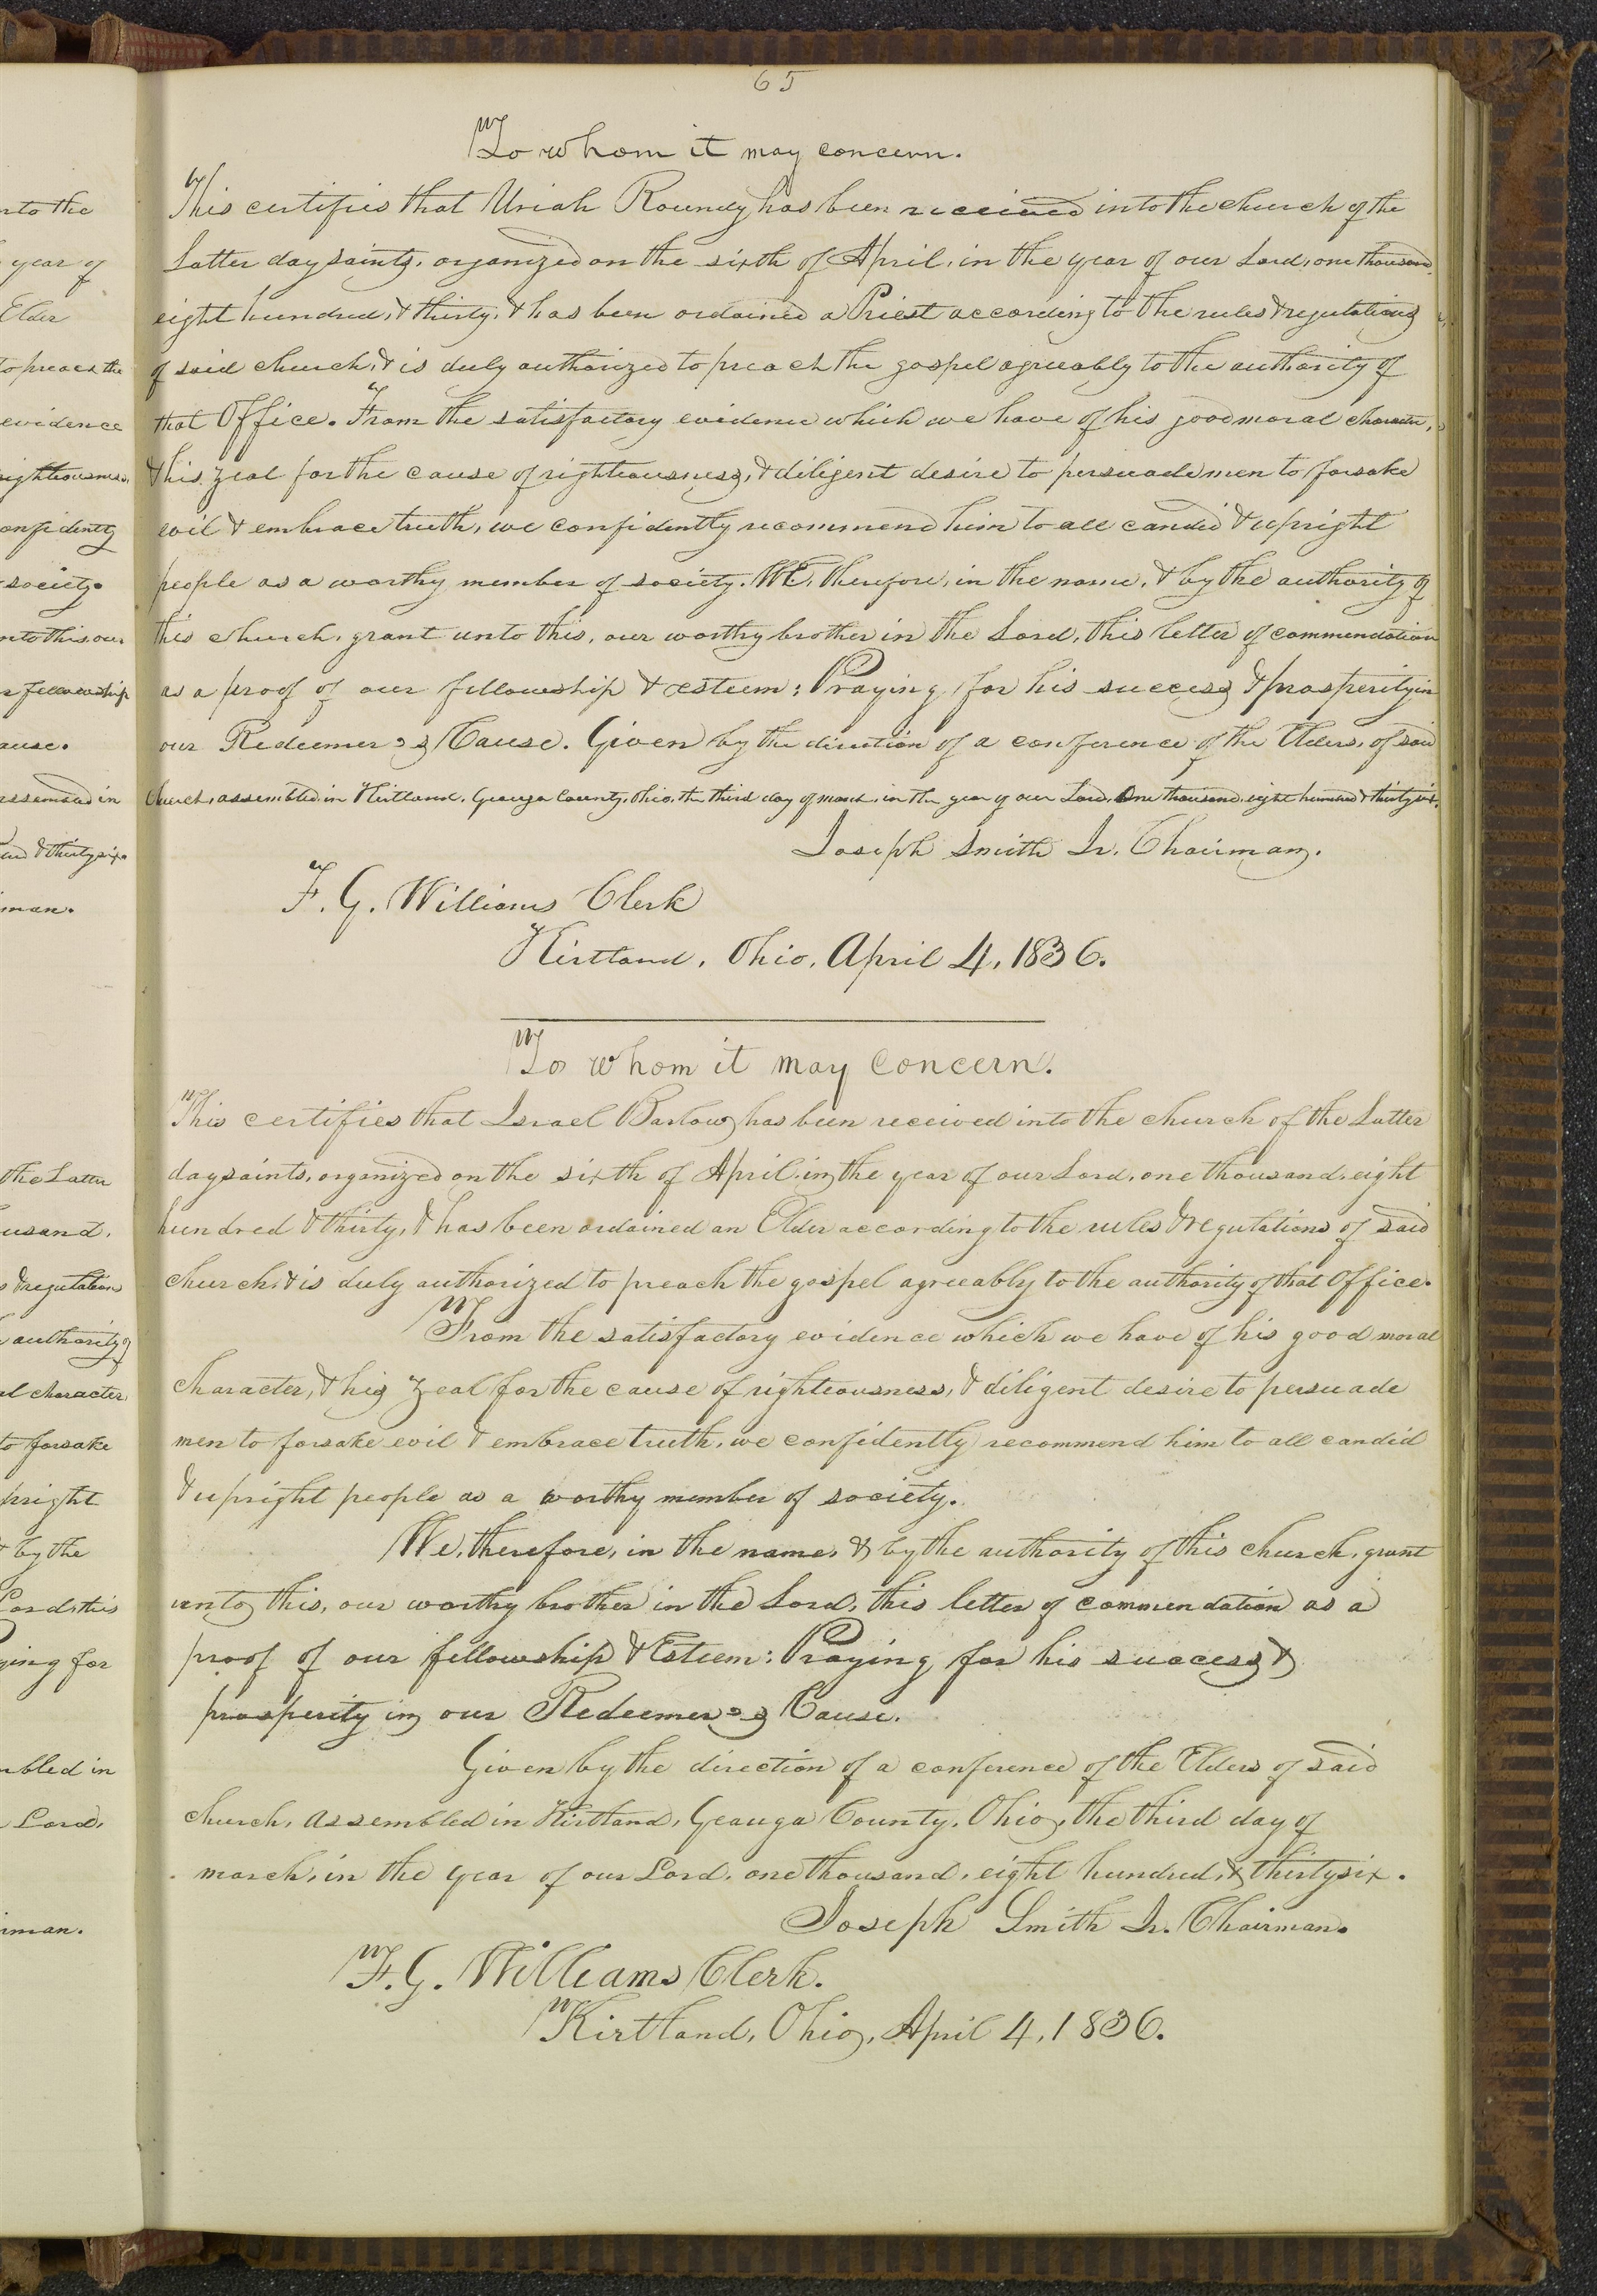 65
To whom it may concern.
This certifies that Uriah Roundy has been received into the church of the
Latter day saints, organized on the sixth of April, in the year of our Lord, one thousand
eight hundred, & thirty, & has been ordained a Priest according to the rules & regulations
of said church, & is duly authorized to preach the gospel agreeably to the authority of
that Office. From the satisfactory evidence which we have of his good moral character,
& his zeal for the cause of righteousness, & diligent desire to persuade men to forsake
evil & embrace truth, we confidently recommend him to all candid & upright
people as a worthy member of society. WE, therefore, in the name, & by the authority of
this church, grant unto this, our worthy brother in the Lord, this letter of commendation
as a proof of our fellowship & esteem: Praying for his success & prosperity in
our Redeemer's Cause. Given by the direction of a conference of the Elders, of said
Church, assembled in Kirtland, Geauga County, Ohio, the third day of march, in the year of our Lord, One thousand, eight hundred & thirty six.
Joseph Smith Jr. Chairman.
F. G. Williams Clerk
Kirtland, Ohio, April 4, 1836.
To whom it may concern.
This certifies that Israel Barlow has been received into the church of the Latter
day saints, organized on the sixth of April, in the year of our Lord, one thousand, eight
hundred & thirty, & has been ordained an Elder according to the rules & regulations of said
church, & is duly authorized to preach the gospel agreeably to the authority of that Office.
From the satisfactory evidence which we have of his good moral
character, & his zeal for the cause of righteousness, & diligent desire to persuade
men to forsake evil & embrace truth, we confidently recommend him to all candid
& upright people as a worthy member of society.
We, therefore, in the name, & by the authority of this church, grant
unto this, our worthy brother in the Lord, this letter of commendation as a
proof of our fellowship & Esteem: Praying for his success &
prosperity in our Redeemer's Cause.
Given by the direction of a conference of the Elders of said
church, assembled in Kirtland, Geauga County, Ohio, the third day of
march, in the year of our Lord, one thousand, eight hundred, & thirty six.
Joseph Smith Jr. Chairman.
F. G. Williams Clerk.
Kirtland, Ohio, April 4, 1836.